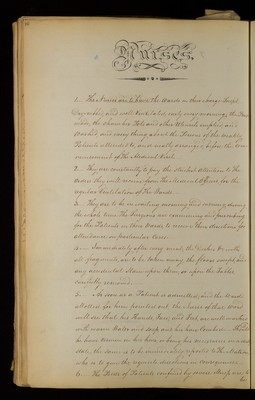 Nurses.
1.. The Nurses are to have the Wards in their charge swept,
dry rubbed, and well Ventilated, early every morning, the Beds
made, the chamber Pots and other Utensils emptied and
Washed, and every thing about the Persons of the weakly
Patients attended to, and neatly arranged, before the com
mencement of the Medical Visit.
2.. They are constantly to pay the strictest attention to the
orders they will receive from the Medical Officers for the
regular Ventilation of the Wards.
3.. They are to be in waiting morning and evening during
the whole time the Surgeons are examining and prescribing
for the Patients in their Wards, to receive their directions for
attendance in particular Cases.
4.. Immediately after every meal, the Dishes &c. with
all fragments, are to be taken away, the floors swept, and
any accidental Stains upon them, or upon the Tables
carefully removed.
5.. As soon as a Patient is admitted, and the Ward
Master has been pointed out, the Nurse of that Ward
will see that his Hands, Face, and Feet are well washed
with warm Water and soap and his hair Combed. Should
he have Vermin in his hair, or being his
state, the same is to be immediately reported to the Matron
who is to give the requisite directions in consequence.
6.. The Beds of Patients confined by severe illness are to
be